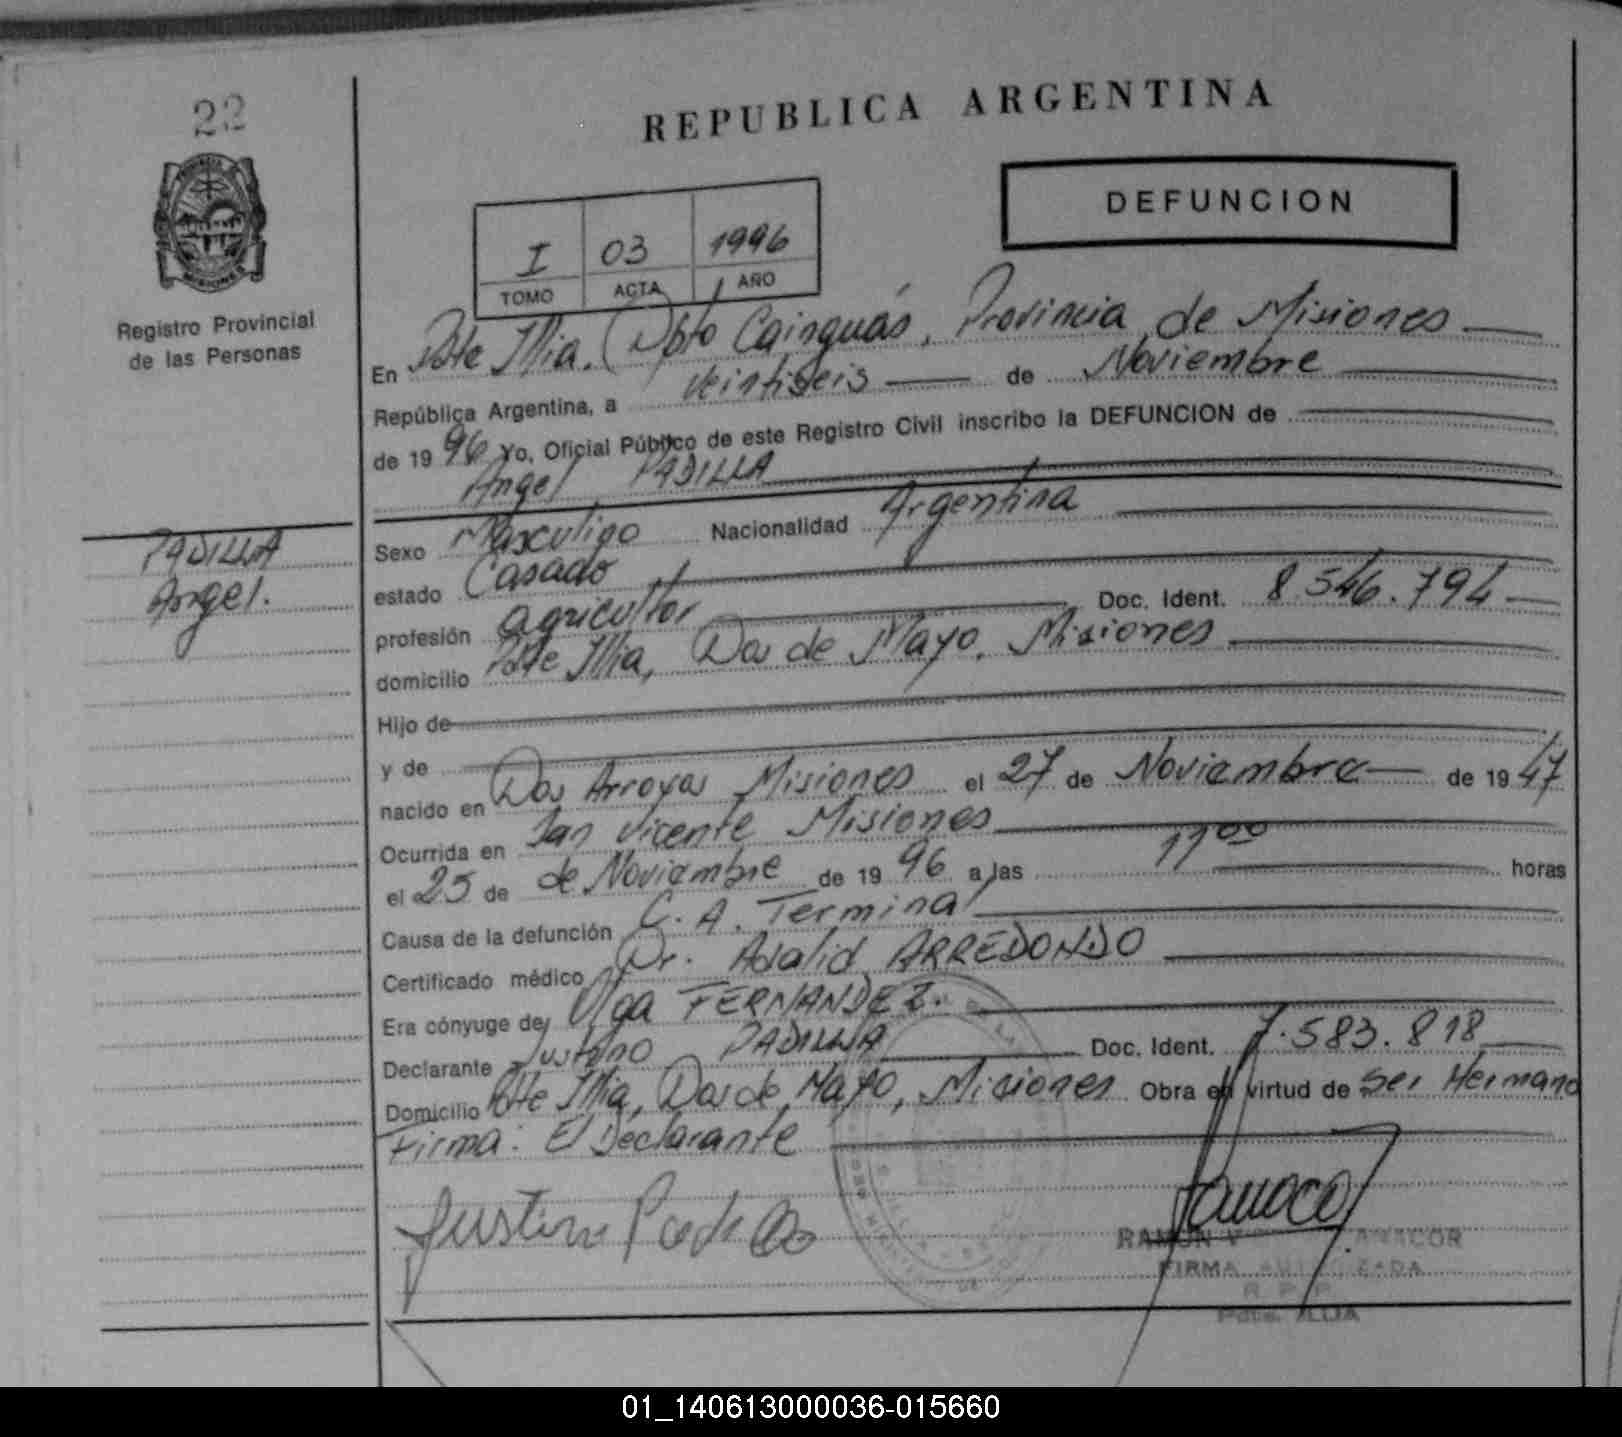 22
REPUBLICA ARGENTINA
DEFUNCION
I 03 1996
TOMO ACTA AÑO
PROVINCIA
MISIONES
Registro Provincial
de las Personas
En Pdte Illia, Dpto Cainguás, Provincia de Misiones
República Argentina, a veintiseis de Noviembre
de 1996 Yo, Oficial Público de este Registro Civil inscribo la DEFUNCION de
Angel PADILLA
PADILLA
Angel.
Sexo Masculino Nacionalidad Argentina
estado Casado
profesión agricultor Doc. Ident. 8.546.794
domicilio Pdte Illia, Dos de Mayo, Misiones
Hijo de
y de
nacido en Dos Arroyos Misiones el 27 de Noviembre de 1947
Ocurrida en San Vicente Misiones
el 25 de de Noviembre de 1996 a las 11 00 horas
Causa de la defunción C.A. Terminal
Certificado médico Dr. Adalid ARREDONDO
Era cónyuge de Olga FERNANDEZ.
Declarante Justino PADILLA Doc. Ident. 7.583.818
Domicilio Pdte Illia, Dos de Mayo, Misiones Obra en virtud de ser Hermano
Firma: El Declarante
Justino Padilla
RAMON
FIRMA AUTORIZADA
R. P. P.
Pdte. ILLIA
01_140613000036-015660